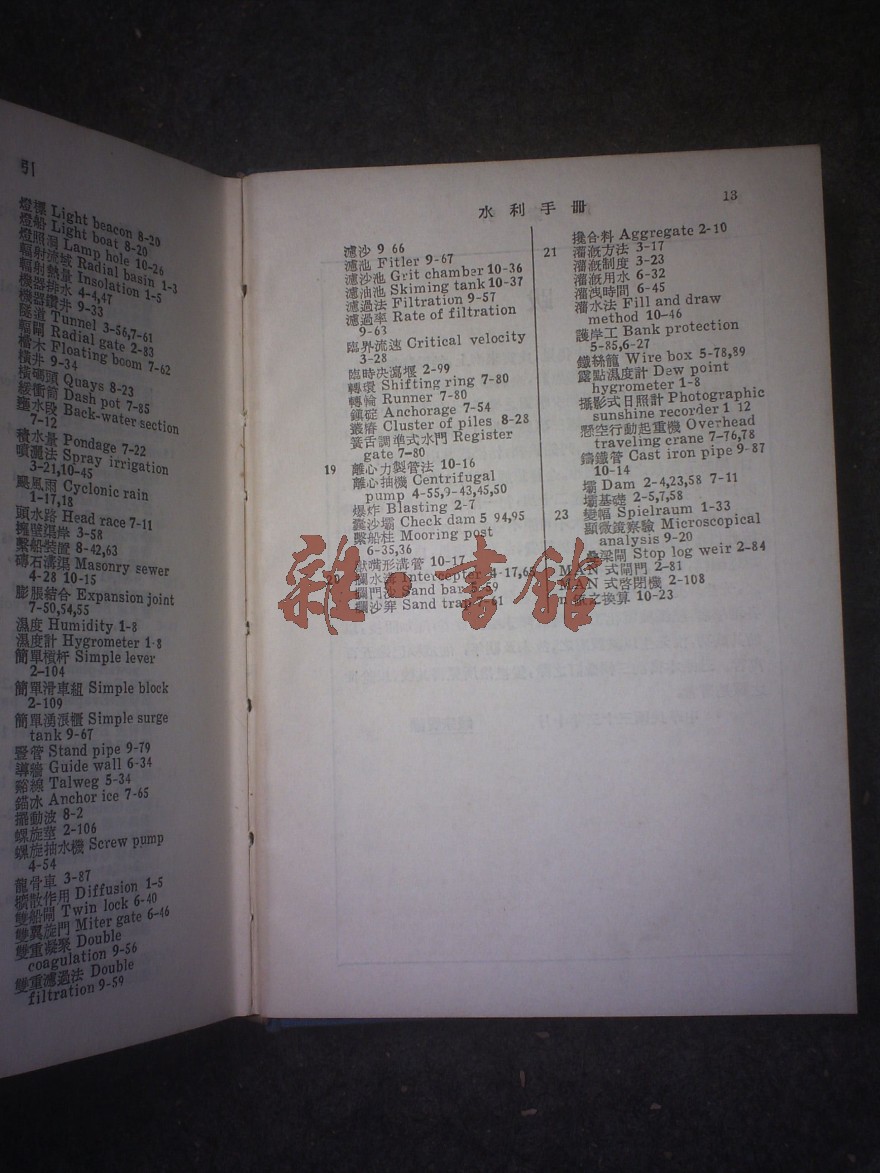 引
燈標 Light beacon 8-20
燈船 Light boat 8-20
燈照洞 Lamp hole 10-26
輻射流域 Radial basin 1-3
輻射熱量 Insolation 1-5
機器排水 4-4,47
機器鑽井 9-33
隧道 Tunnel 3-56,7-61
輻閘 Radial gate 2-83
檣木 Floating boom 7-62
橫井 9-34
橫碼頭 Quays 8-23
緩衝筒 Dash pot 7-85
壅水段 Back-water section
7-12
積水量 Pondage 7-22
噴灑法 Spray irrigation
3-21,10-45
颶風雨 Cyclonic rain
1-17,18
頭水路 Head race 7-11
擁壁渠岸 3-58
繫船裝置 8-42,63
磚石溝渠 Masonry sewer
4-28 10-15
膨脹結合 Expansion joint
7-50,54,55
濕度 Humidity 1-8
濕度計 Hygrometer 1-8
簡單槓杆 Simple lever
2-104
簡單滑車組 Simple block
2-109
簡單湧浪櫃 Simple surge
tank 9-67
豎管 Stand pipe 9-79
導牆 Guide wall 6-34
谿線 Talweg 5-34
錨冰 Anchor ice 7-65
擺動波 8-2
螺旋 2-106
螺旋抽水機 Screw pump
4-54
龍骨車 3-87
擴散作用 Diffusion 1-5
雙船閘 Twin lock 6-40
雙翼旋門 Miter gate 6-46
雙重凝聚 Double
coagulation 9-56
雙重濾過法 Double
filtration 9-59
水利手冊 13
濾沙 9 66
濾池 Fitler 9-67
濾沙池 Grit chamber 10-36
濾油池 Skiming tank 10-37
濾過法 Filtration 9-57
濾過率 Rate of filtration
9-63
臨界流速 Critical velocity
3-28
臨時決瀉堰 2-99
轉環 Shifting ring 7-80
轉輪 Runner 7-80
鎮碇 Anchorage 7-54
叢樁 Cluster of piles 8-28
簧舌調準式水門 Register
gate 7-80
19 離心力製管法 10-16
離心抽機 Centrifugal
pump 4-55,9-43,45,50
爆炸 Blasting 2-7
囊沙壩 Check dam 5 94,95
繫船柱 Mooring post
6-35,36
獸嘴形溝管 10-17
20 攔水溝 Intercepter 4-17,65
攔門沙 Sand bar 5-59
攔沙穽 Sand trap 7-61
攙合料 Aggregate 2-10
21 灌溉方法 3-17
灌溉制度 3-23
灌溉用水 6-32
灌洩時間 6-45
灌水法 Fill and draw
method 10-46
護岸工 Bank protection
5-85,6-27
鐵絲籠 Wire box 5-78,89
露點濕度計 Dew point
hygrometer 1-8
攝影式日照計 Photographic
sunshine recorder 1 12
懸空行動起重機 Overhead
traveling crane 7-76,78
鑄鐵管 Cast iron pipe 9-87
10-14
壩 Dam 2-4,23,58 7-11
壩基礎 2-5,7,58
23 變幅 Spielraum 1-33
顯微鏡察驗 Microscopical
analysis 9-20
疊梁閘 Stop log weir 2-84
MAN 式閘門 2-81
MAN 式啓閉機 2-108
之換算 10-23
雜書館